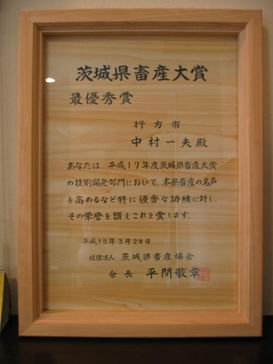 茨城県畜産大賞
最優秀賞
行方市
中村一夫殿
あなたは、平成17年度茨城県畜産大賞
の技術開発部門において、本県畜産の名声
を高めるなど特に優秀な功績に対し
その栄誉を讃えこれを賞します。
平成18年3月28日
社団法人 茨城県畜産協会
会長 平間敬章